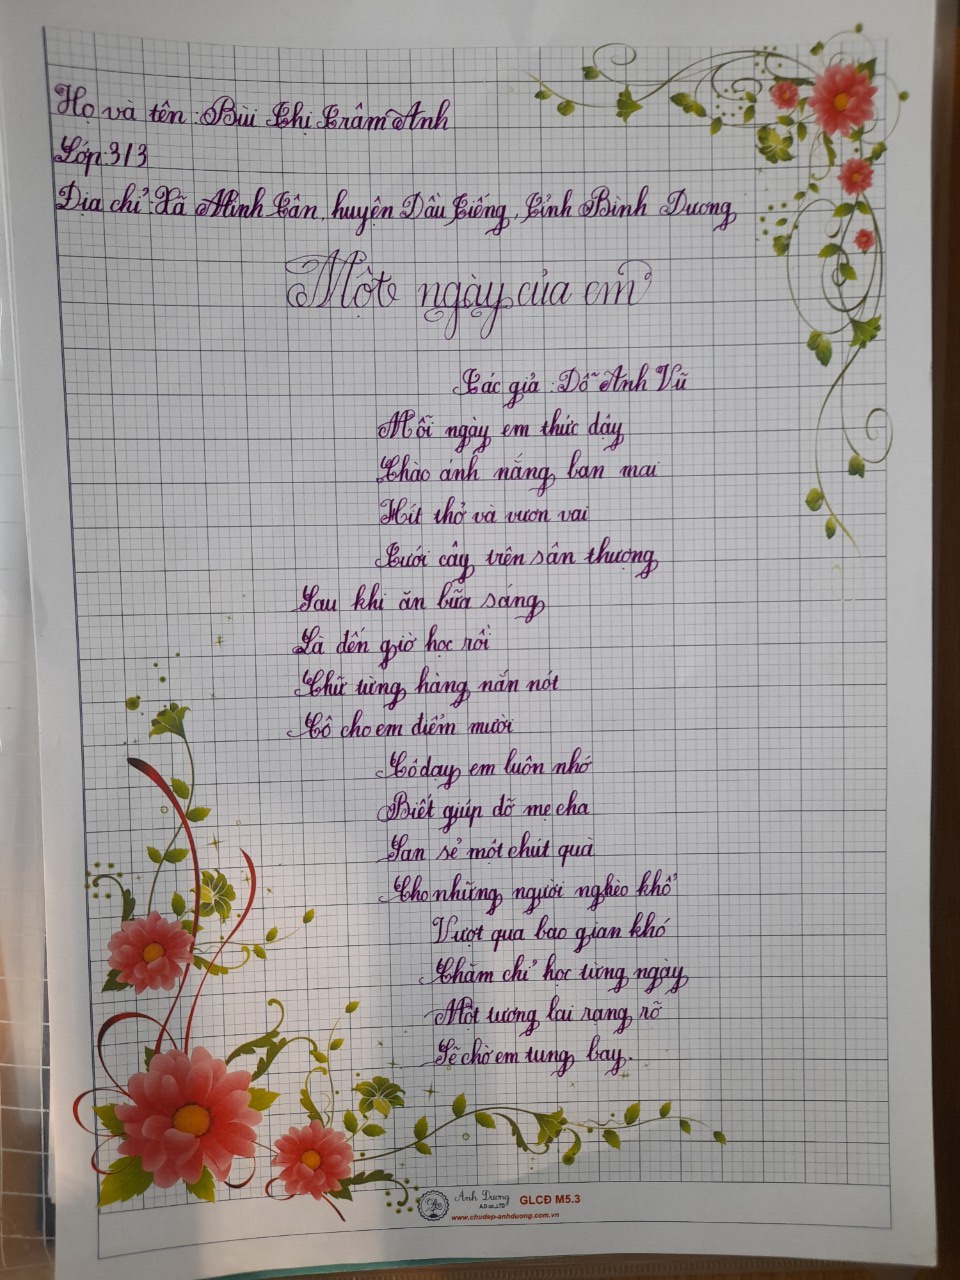 Họ và tên: Bùi Thị Trâm Anh
Lớp: 3/3
Địa chỉ: Xã Minh Tân, huyện Dầu Tiếng, Tỉnh Bình Dương
Một ngày của em
Tác giả: Đỗ Anh Vũ
Mỗi ngày em thức dậy
Chào ánh nắng ban mai
Hít thở và vươn vai
Tưới cây trên sân thượng
Sau khi ăn bữa sáng
Là đến giờ học rồi
Chữ từng hàng nắn nót
Cô cho em điểm mười
Cô dạy em luôn nhớ
Biết giúp đỡ mẹ cha
San sẻ một chút quà
Cho những người nghèo khổ
Vượt qua bao gian khó
Chăm chỉ học từng ngày
Một tương lai rạng rỡ
Sẽ chờ em tung bay.
Anh Dương
A.D co.,LTD
GLCĐ M5.3
www.chudep-anhduong.com.vn